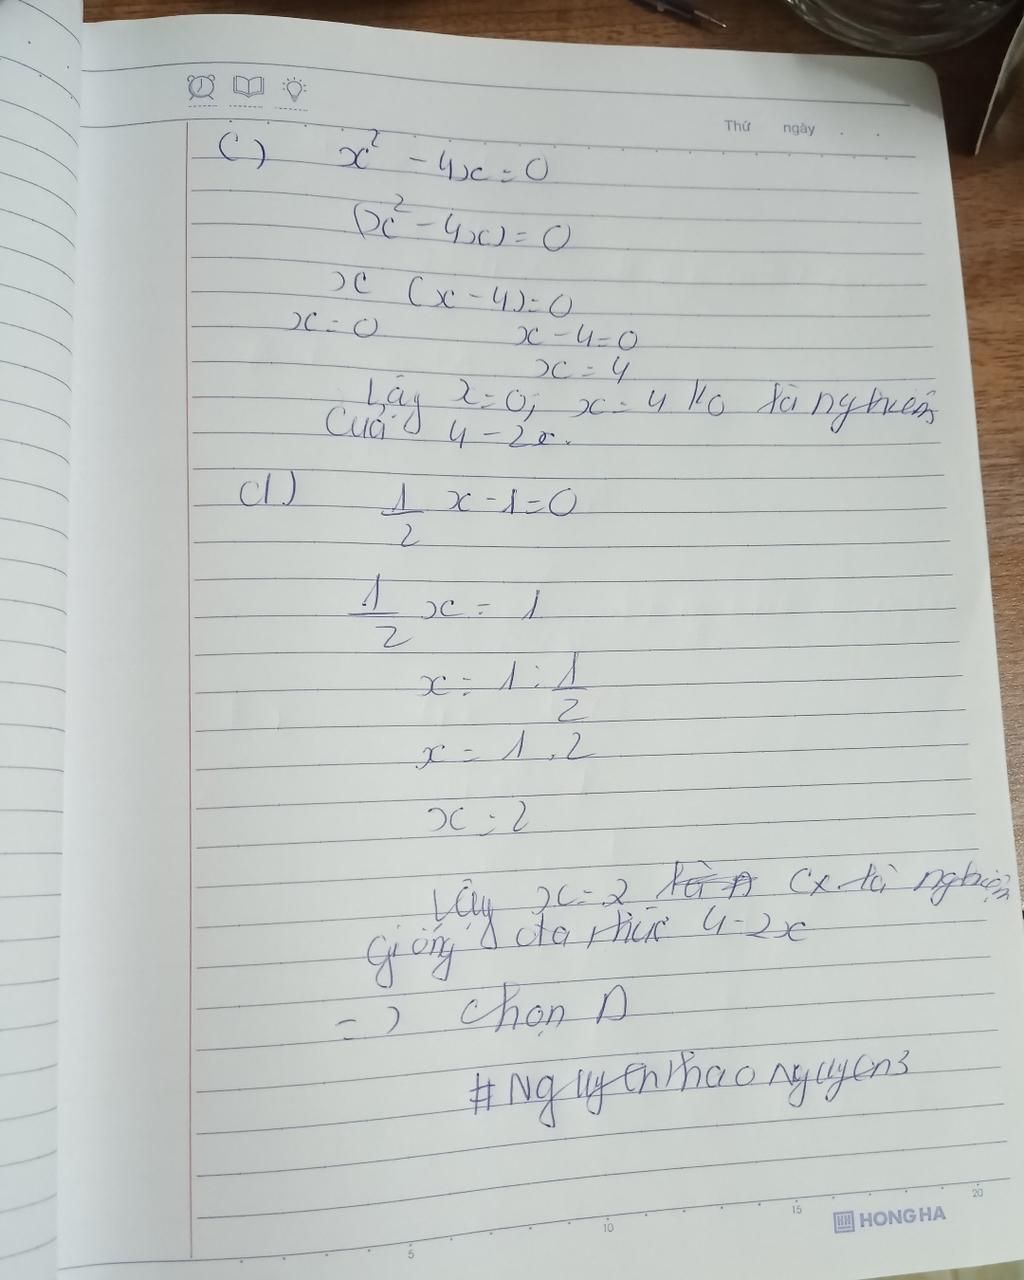 Thứ ngày . .
C) x² - 4x = 0
(x² - 4x) = 0
x (x - 4) = 0
x = 0 x - 4 = 0
x = 4
Vậy x = 0; x = 4 ko là nghiệm
Của 4 - 2x.
d) 1/2 x - 1 = 0
1/2 x = 1
x = 1 : 1/2
x = 1 . 2
x = 2
Vậy x = 2 cx là nghiệm
giống đa thức 4 - 2x
=) Chọn D
#Nguyenthaonguyen3
5 10 15 20
HONG HA